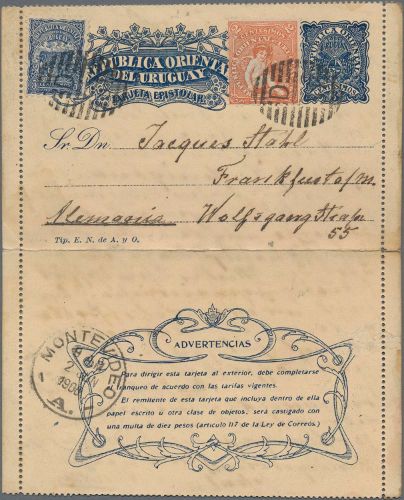 REPUBLICA ORIENTAL
DEL URUGUAY
TARJETA EPISTOLAR
2 CENTESIMOS 2
Sr. Dn. Jacques Stahl
Frankfurt a/m.
Alemania Wolfsgang Strasse
55
Tip. E. N. de A. y O.
MONTEVIDEO
1908
A.
ADVERTENCIAS
Para dirigir esta tarjeta al exterior, debe completarse
franqueo de acuerdo con las tarifas vigentes.
El remitente de esta tarjeta que incluya dentro de ella
papel escrito u otra clase de objetos, será castigado con
una multa de diez pesos (artículo 117 de la Ley de Correos).